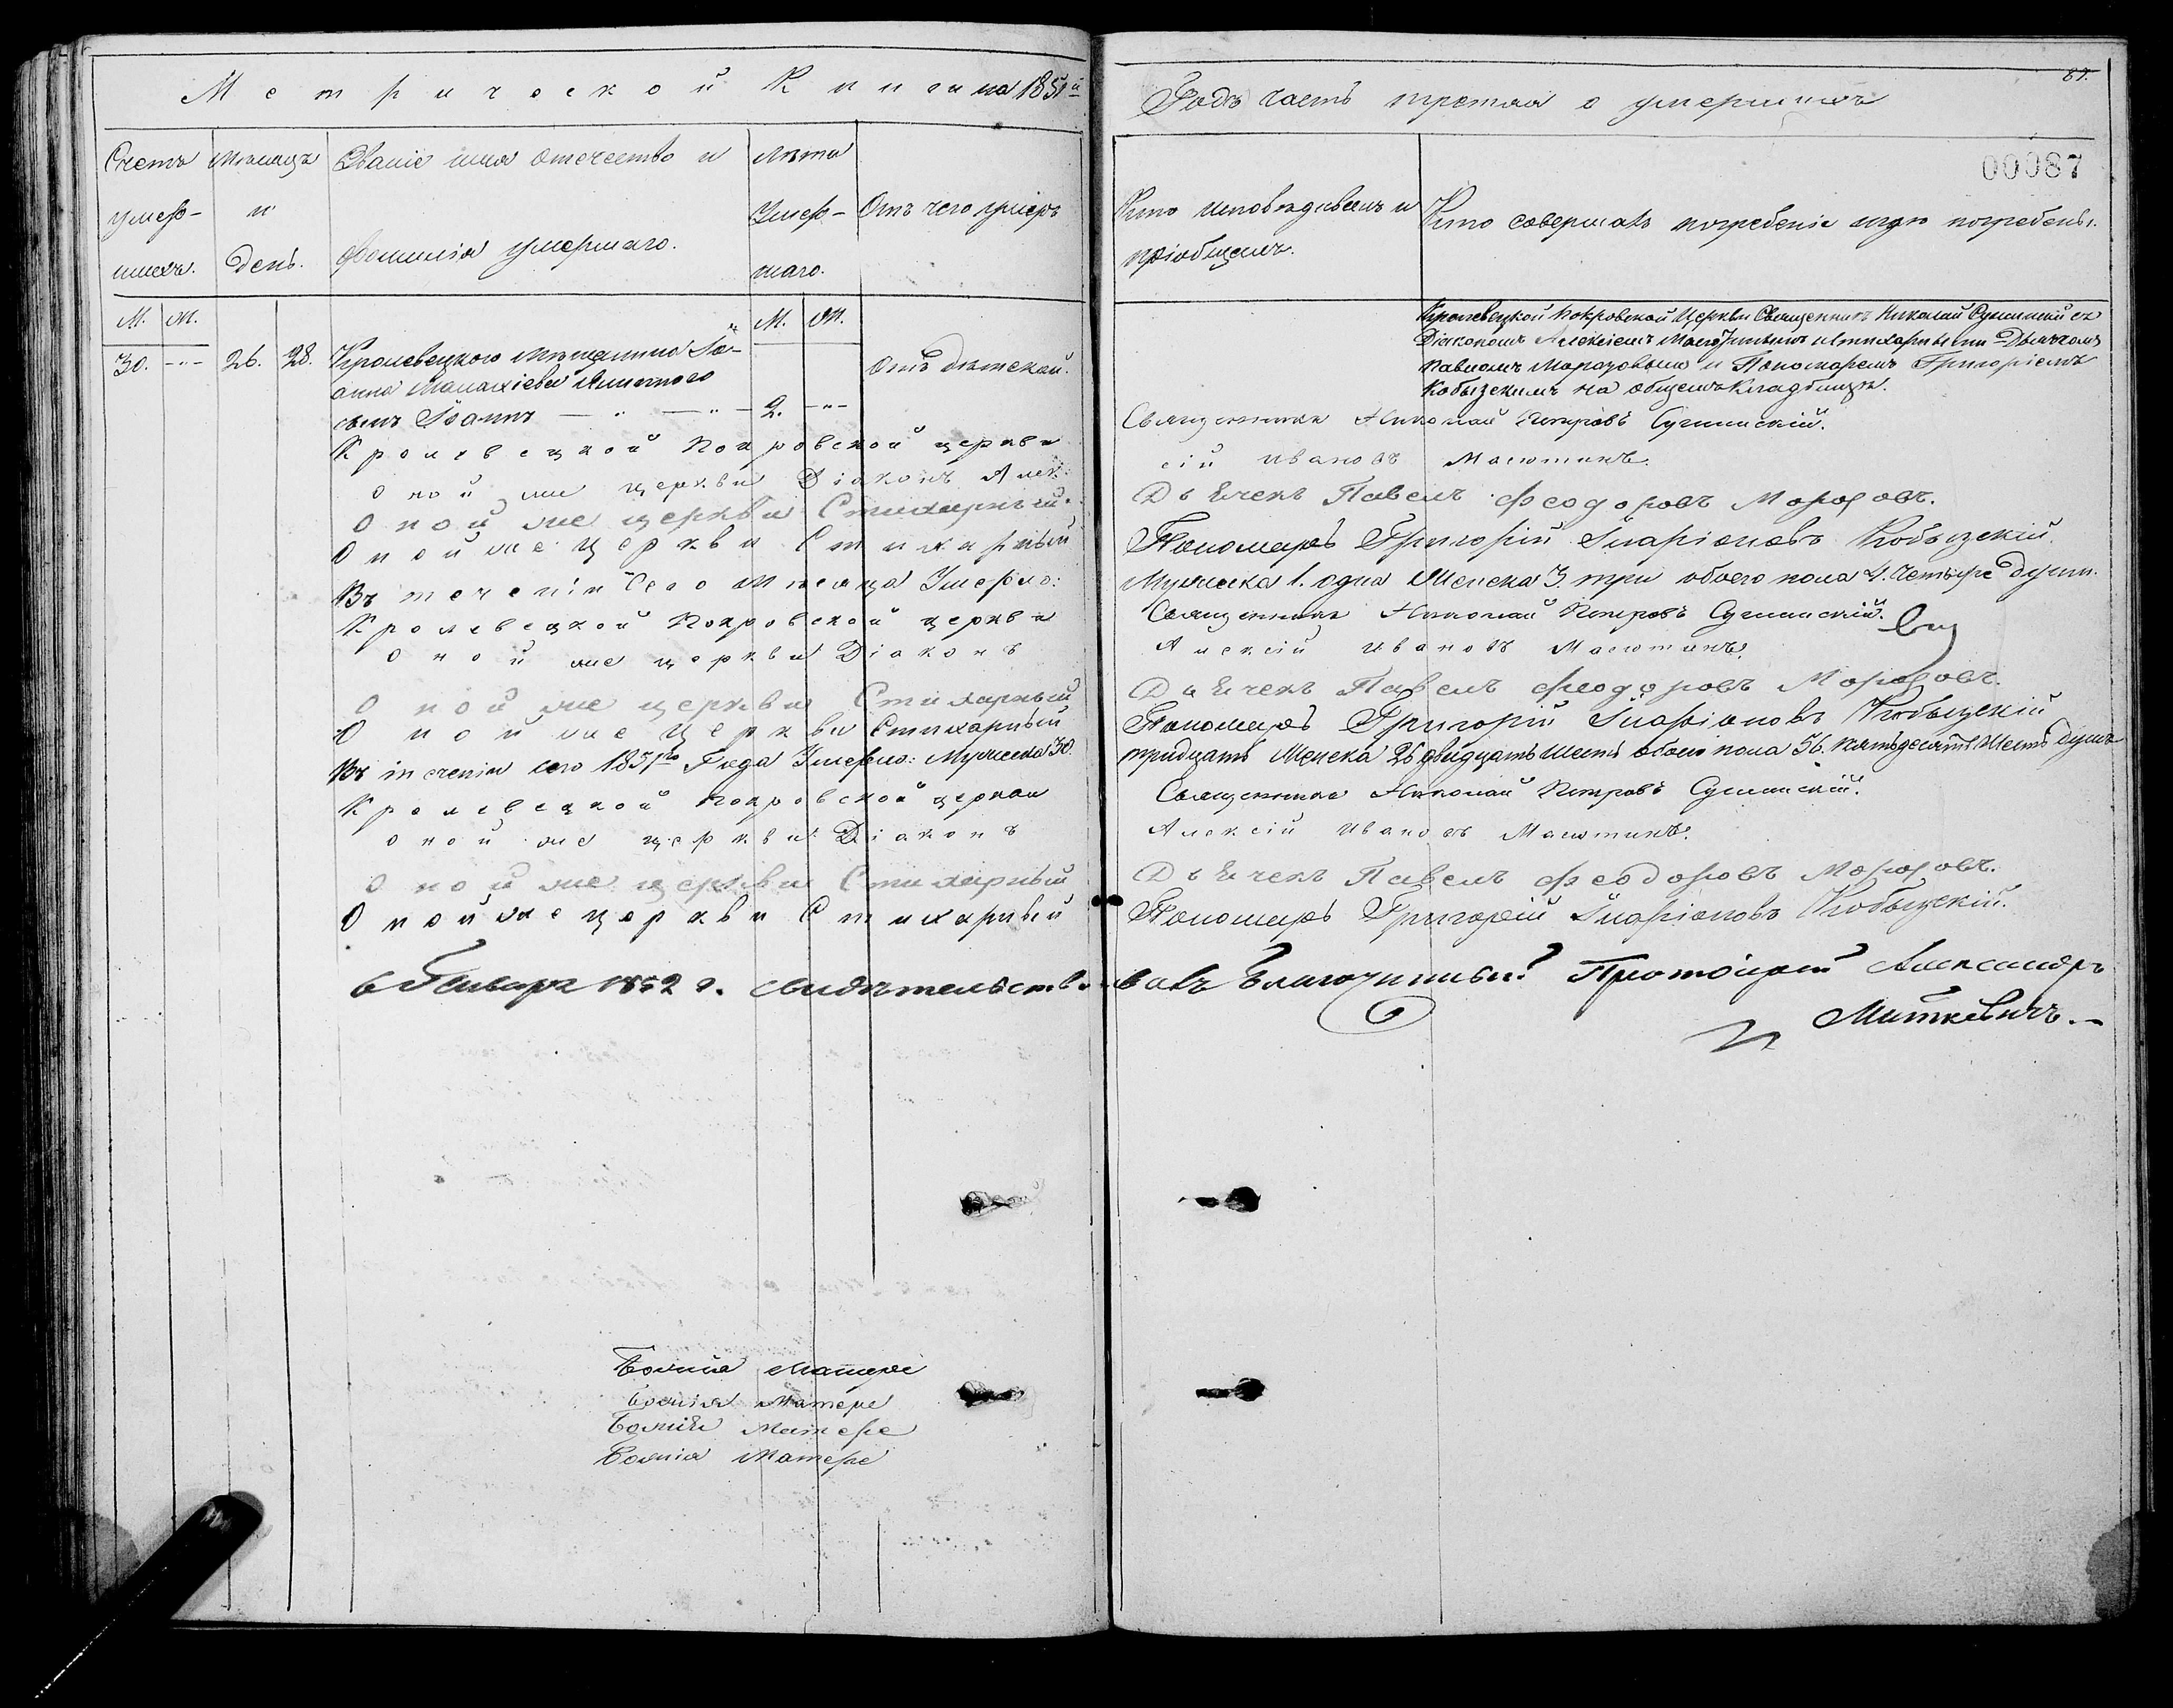 Метрической Книги на 1851й
Счетъ умер-шихъ.
Мѣсяцъ и День.
Званіе имя отечество и фамилія умершаго.
Лѣта Умер-шаго.
Отъ чего умеръ
М. Ж.
М. Ж.
30. -"- 26. 28. Кролевецкого мѣщанина Іо-
анна
сынъ Іоаннъ — " — " — 2. -"-
Отъ дѣтской.
Кролевецкой Покровской церкви
Оной же церкви Діаконъ Алек-
Оной же церкви Стихарный
Оной же Церкви Стихарный
Въ теченіи Сего Мѣсяца Умерло:
Кролевецкой Покровской церкви
Оной же церкви Діаконъ
Оной же церкви Стихарный
Оной же Церкви Стихарный
Въ теченіи сего 1851го Года Умерло: Мужеска 30.
Кролевецкой Покровской церкви
Оной же церкви Діаконъ
Оной же церкви Стихарный
Оной же церкви Стихарный
6 Генваря 1852 г. свидѣтельство-
Божія Матере
Божія Матере
Божія Матере
Божія Матере
87.
Годъ часть третая о умершихъ
00087
Кто исповѣдывалъ и
пріобщалъ.
Кто совершалъ погребеніе и гдѣ погребены.
Кролевецкой Покровской Церкви Священникъ Николай Сушинскій съ
Діакономъ Алексіемъ Масютинымъ и стихарными Дьячкомъ
Павломъ Морозовымъ и Пономаремъ Григоріемъ
Кобызскимъ на общемъ Кладбищѣ.
Священникъ Николай Петровъ Сушинскій.
сій Ивановъ Масютинъ.
Дьячекъ Павелъ Феодоровъ Морозовъ.
Пономарь Григорій Иларіоновъ Кобызскій.
Мужеска 1. одна Женска 3. три обоего пола 4. Четыре души.
Священникъ Николай Петровъ Сушинскій.
Алексій Ивановъ Масютинъ.
Дьячекъ Павелъ Феодоровъ Морозовъ.
Пономарь Григорій Иларіоновъ Кобызскій
тридцать Женска 26 двадцать Шесть обоего пола 56. пятьдесятъ Шесть душъ
Священникъ Николай Петровъ Сушинскій.
Алексій Ивановъ Масютинъ.
Дьячекъ Павелъ Феодоровъ Морозовъ.
Пономарь Григорій Иларіоновъ Кобызскій.
валъ Благочинный Протоіерей Александръ
Миткевичъ.